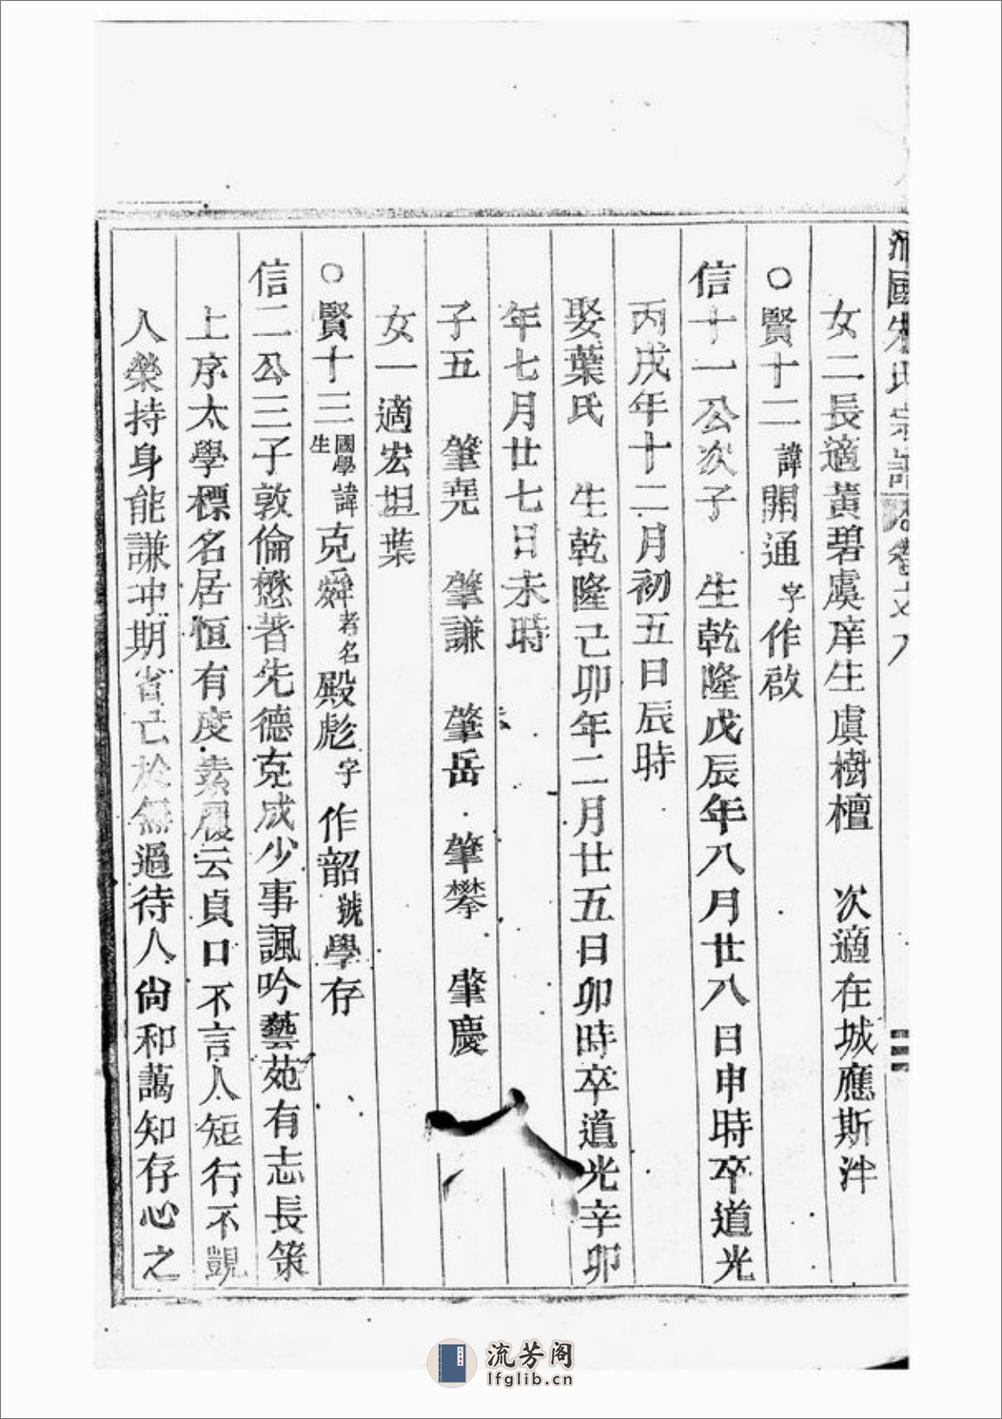 國朱氏宗譜 卷之八
女二長適黃碧虞庠生虞樹檀 次適在城應斯泮
○賢十二諱開通字作啟
信十一公次子 生乾隆戊辰年八月廿八日申時卒道光
丙戌年十二月初五日辰時
娶葉氏 生乾隆己卯年二月廿五日卯時卒道光辛卯
年七月廿七日未時
子五 肇堯 肇謙 肇岳 肇攀 肇慶
女一適宏坦葉
○賢十三國學生諱克舜考名殿彪字作韶號學存
信二公三子敦倫懋著先德克成少事諷吟藝苑有志長策
上序太學標名居恒有度素履云貞口不言人短行不覬
人榮持身能謙冲期省己於無過待人尙和藹知存心之
流芳阁
lfglib.cn